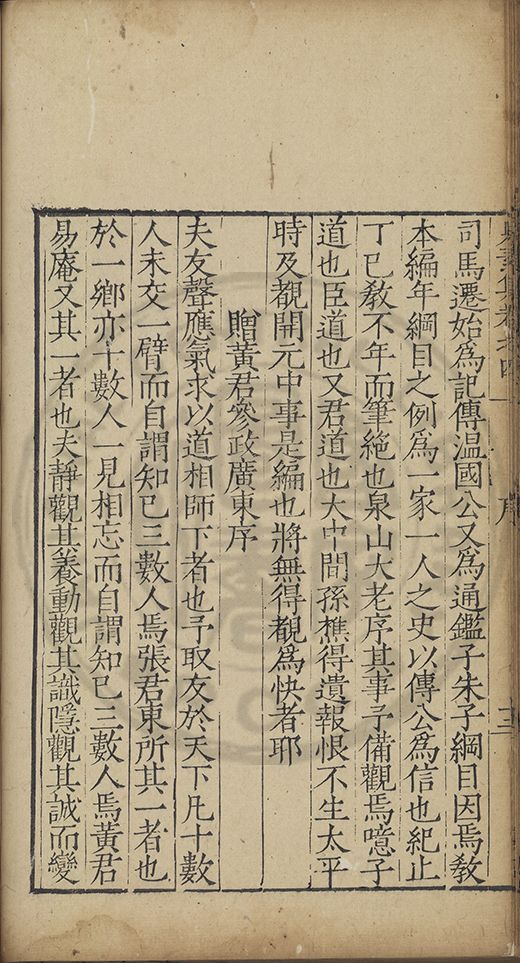 司馬遷始爲記傳溫國公又爲通鑑子朱子綱目因焉敎
本編年綱目之例爲一家一人之史以傳公爲信也紀止
丁巳敎不年而筆絶也泉山大老序其事予備觀焉噫子
道也臣道也又君道也大中間孫樵得遺報恨不生太平
時及覩開元中事是編也將無得覩爲快者耶
贈黃君參政廣東序
夫友聲應氣求以道相師下者也予取友於天下凡十數
人未交一臂而自謂知已三數人焉張君東所其一者也
於一鄉亦十數人一見相忘而自謂知已三數人焉黃君
易庵又其一者也夫靜觀其養動觀其識隱觀其誠而變